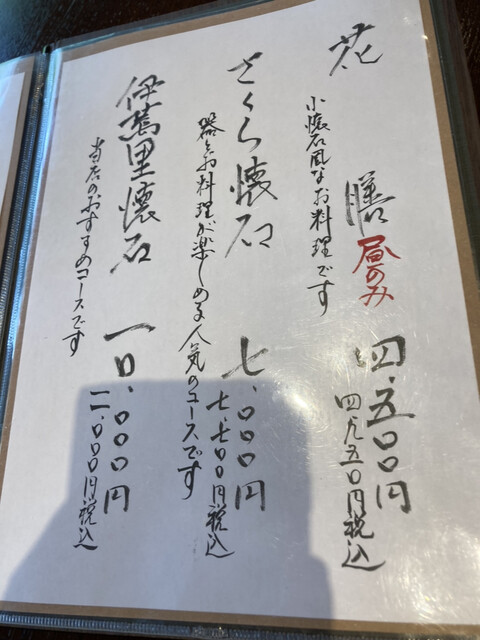 花 膳 昼のみ 四.五〇〇円
四.九五〇円税込
小懐石風なお料理です
さくら懐石 七.〇〇〇円
七.七〇〇円税込
器とお料理が楽しめる人気のコースです
伊萬里懐石 一〇.〇〇〇円
一一.〇〇〇円税込
当店のおすすめコースです